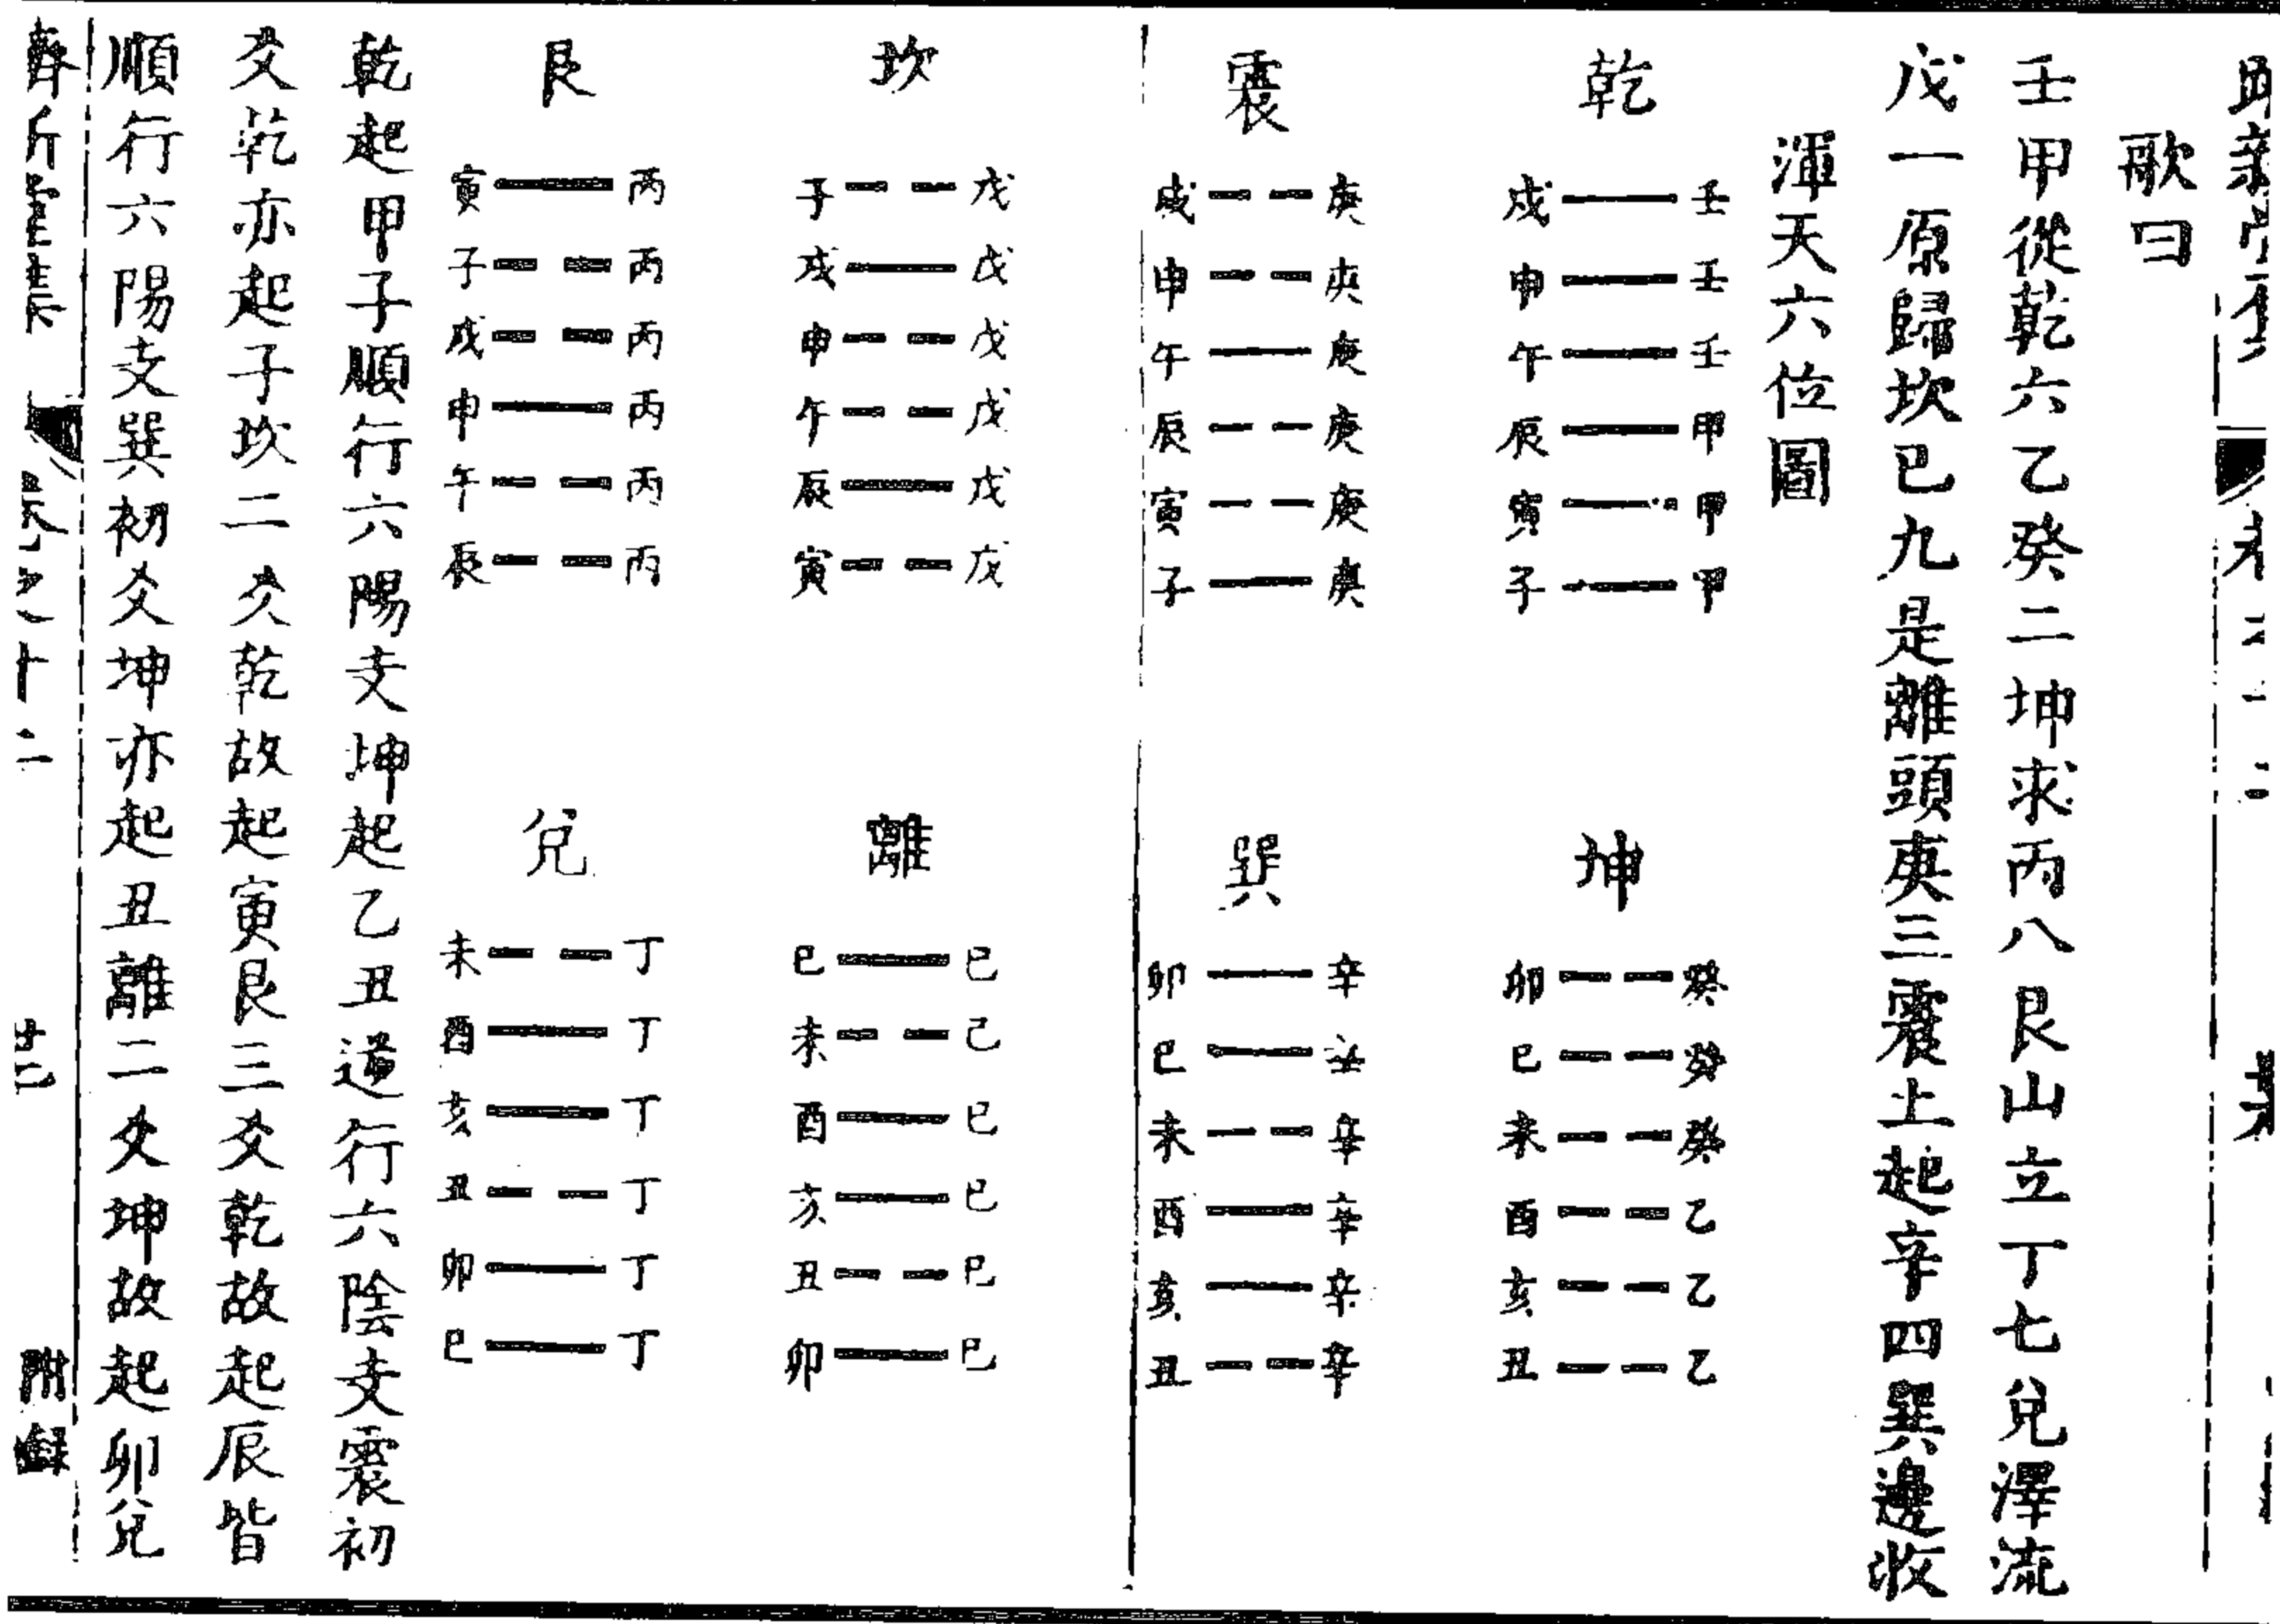 歌曰
壬甲從乾六乙癸二坤求丙八艮山立丁七兌澤流
戊一原歸坎巳九是離頭庚三震上起辛四巽邊收
渾天六位圖
乾
壬 戌
壬 申
壬 午
甲 辰
甲 寅
甲 子
坤
癸 卯
癸 巳
癸 未
乙 酉
乙 亥
乙 丑
震
庚 戌
庚 申
庚 午
庚 辰
庚 寅
庚 子
巽
辛 卯
辛 巳
辛 未
辛 酉
辛 亥
辛 丑
坎
戊 子
戊 戌
戊 申
戊 午
戊 辰
戊 寅
離
巳 巳
己 未
巳 酉
巳 亥
巳 丑
巳 卯
艮
丙 寅
丙 子
丙 戌
丙 申
丙 午
丙 辰
兌
丁 未
丁 酉
丁 亥
丁 丑
丁 卯
丁 巳
乾起甲子順行六陽支坤起乙丑逆行六陰支震初
爻乾亦起子坎二爻乾故起寅艮三爻乾故起辰皆
順行六陽支巽初爻坤亦起丑離二爻坤故起卯兌
卷之十二
附錄